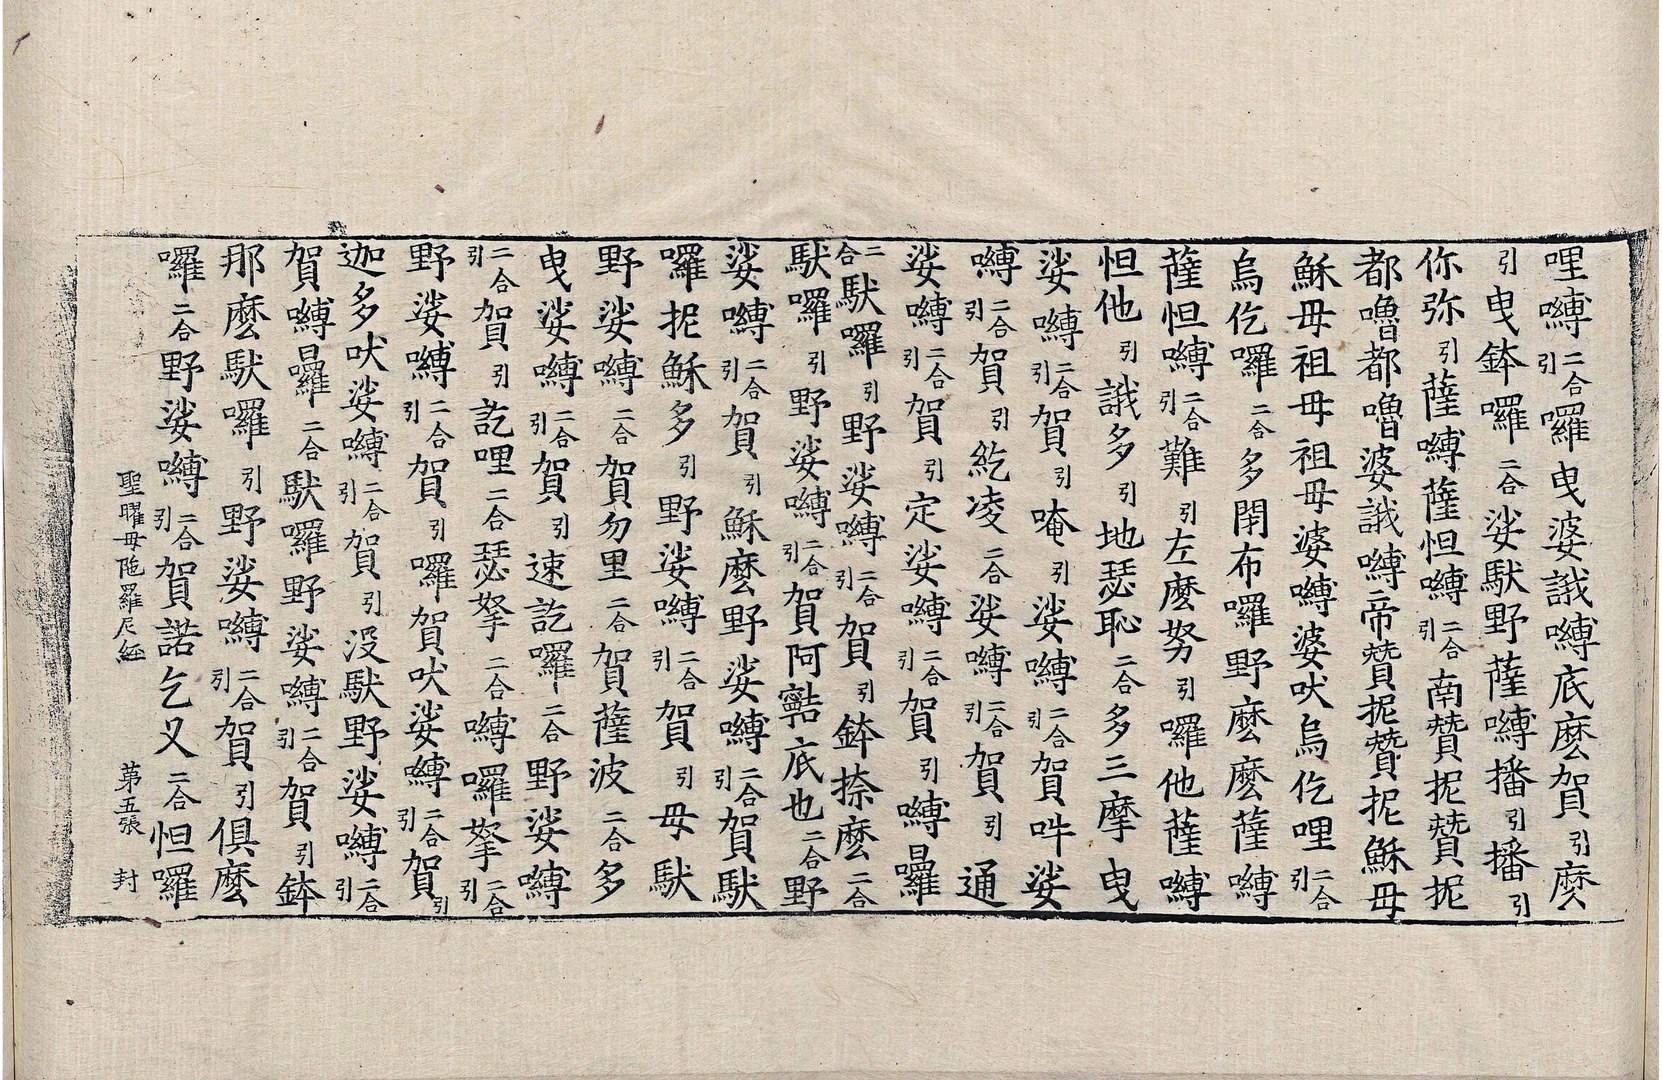 哩嚩二合引囉曳婆誐嚩底麽賀引麽
引曳鉢囉二合娑馱野薩嚩播引播引
你弥引薩嚩薩怛嚩二合引南贊抳贊抳
都嚕都嚕婆誐嚩帝贊抳贊抳穌母
穌母祖母祖母婆嚩婆吠烏仡哩二合引
烏仡囉二合多閉布囉野麽麽薩嚩
薩怛嚩二合引難引左麽努引囉他薩嚩
怛他引誐多引地瑟恥二合多三摩曳
娑嚩二合引賀引唵引娑嚩二合引賀吽娑
嚩二合引賀引紇凌二合娑嚩二合引賀引通
娑嚩二合引賀引定娑嚩二合引賀引嚩曩
二合馱囉引野娑嚩二合引賀引鉢捺麽二合
馱囉引野娑嚩二合引賀阿𩕳底也二合野
娑嚩二合引賀引穌麽野娑嚩二合引賀馱
囉抳穌多引野娑嚩二合引賀引母馱
野娑嚩二合賀勿里二合賀薩波二合多
曳娑嚩二合引賀引速訖囉二合野娑嚩
二合引賀引訖哩二合瑟拏二合嚩囉拏二合引
野娑嚩二合引賀引囉賀吠娑嚩二合引賀引
迦多吠娑嚩二合引賀引沒馱野娑嚩二合引
賀嚩曩二合馱囉野娑嚩二合引賀引鉢
那麽馱囉引野娑嚩二合引賀引俱麽
囉二合野娑嚩二合引賀諾乞叉二合怛囉
聖曜母陁羅尼經 苐五張 封